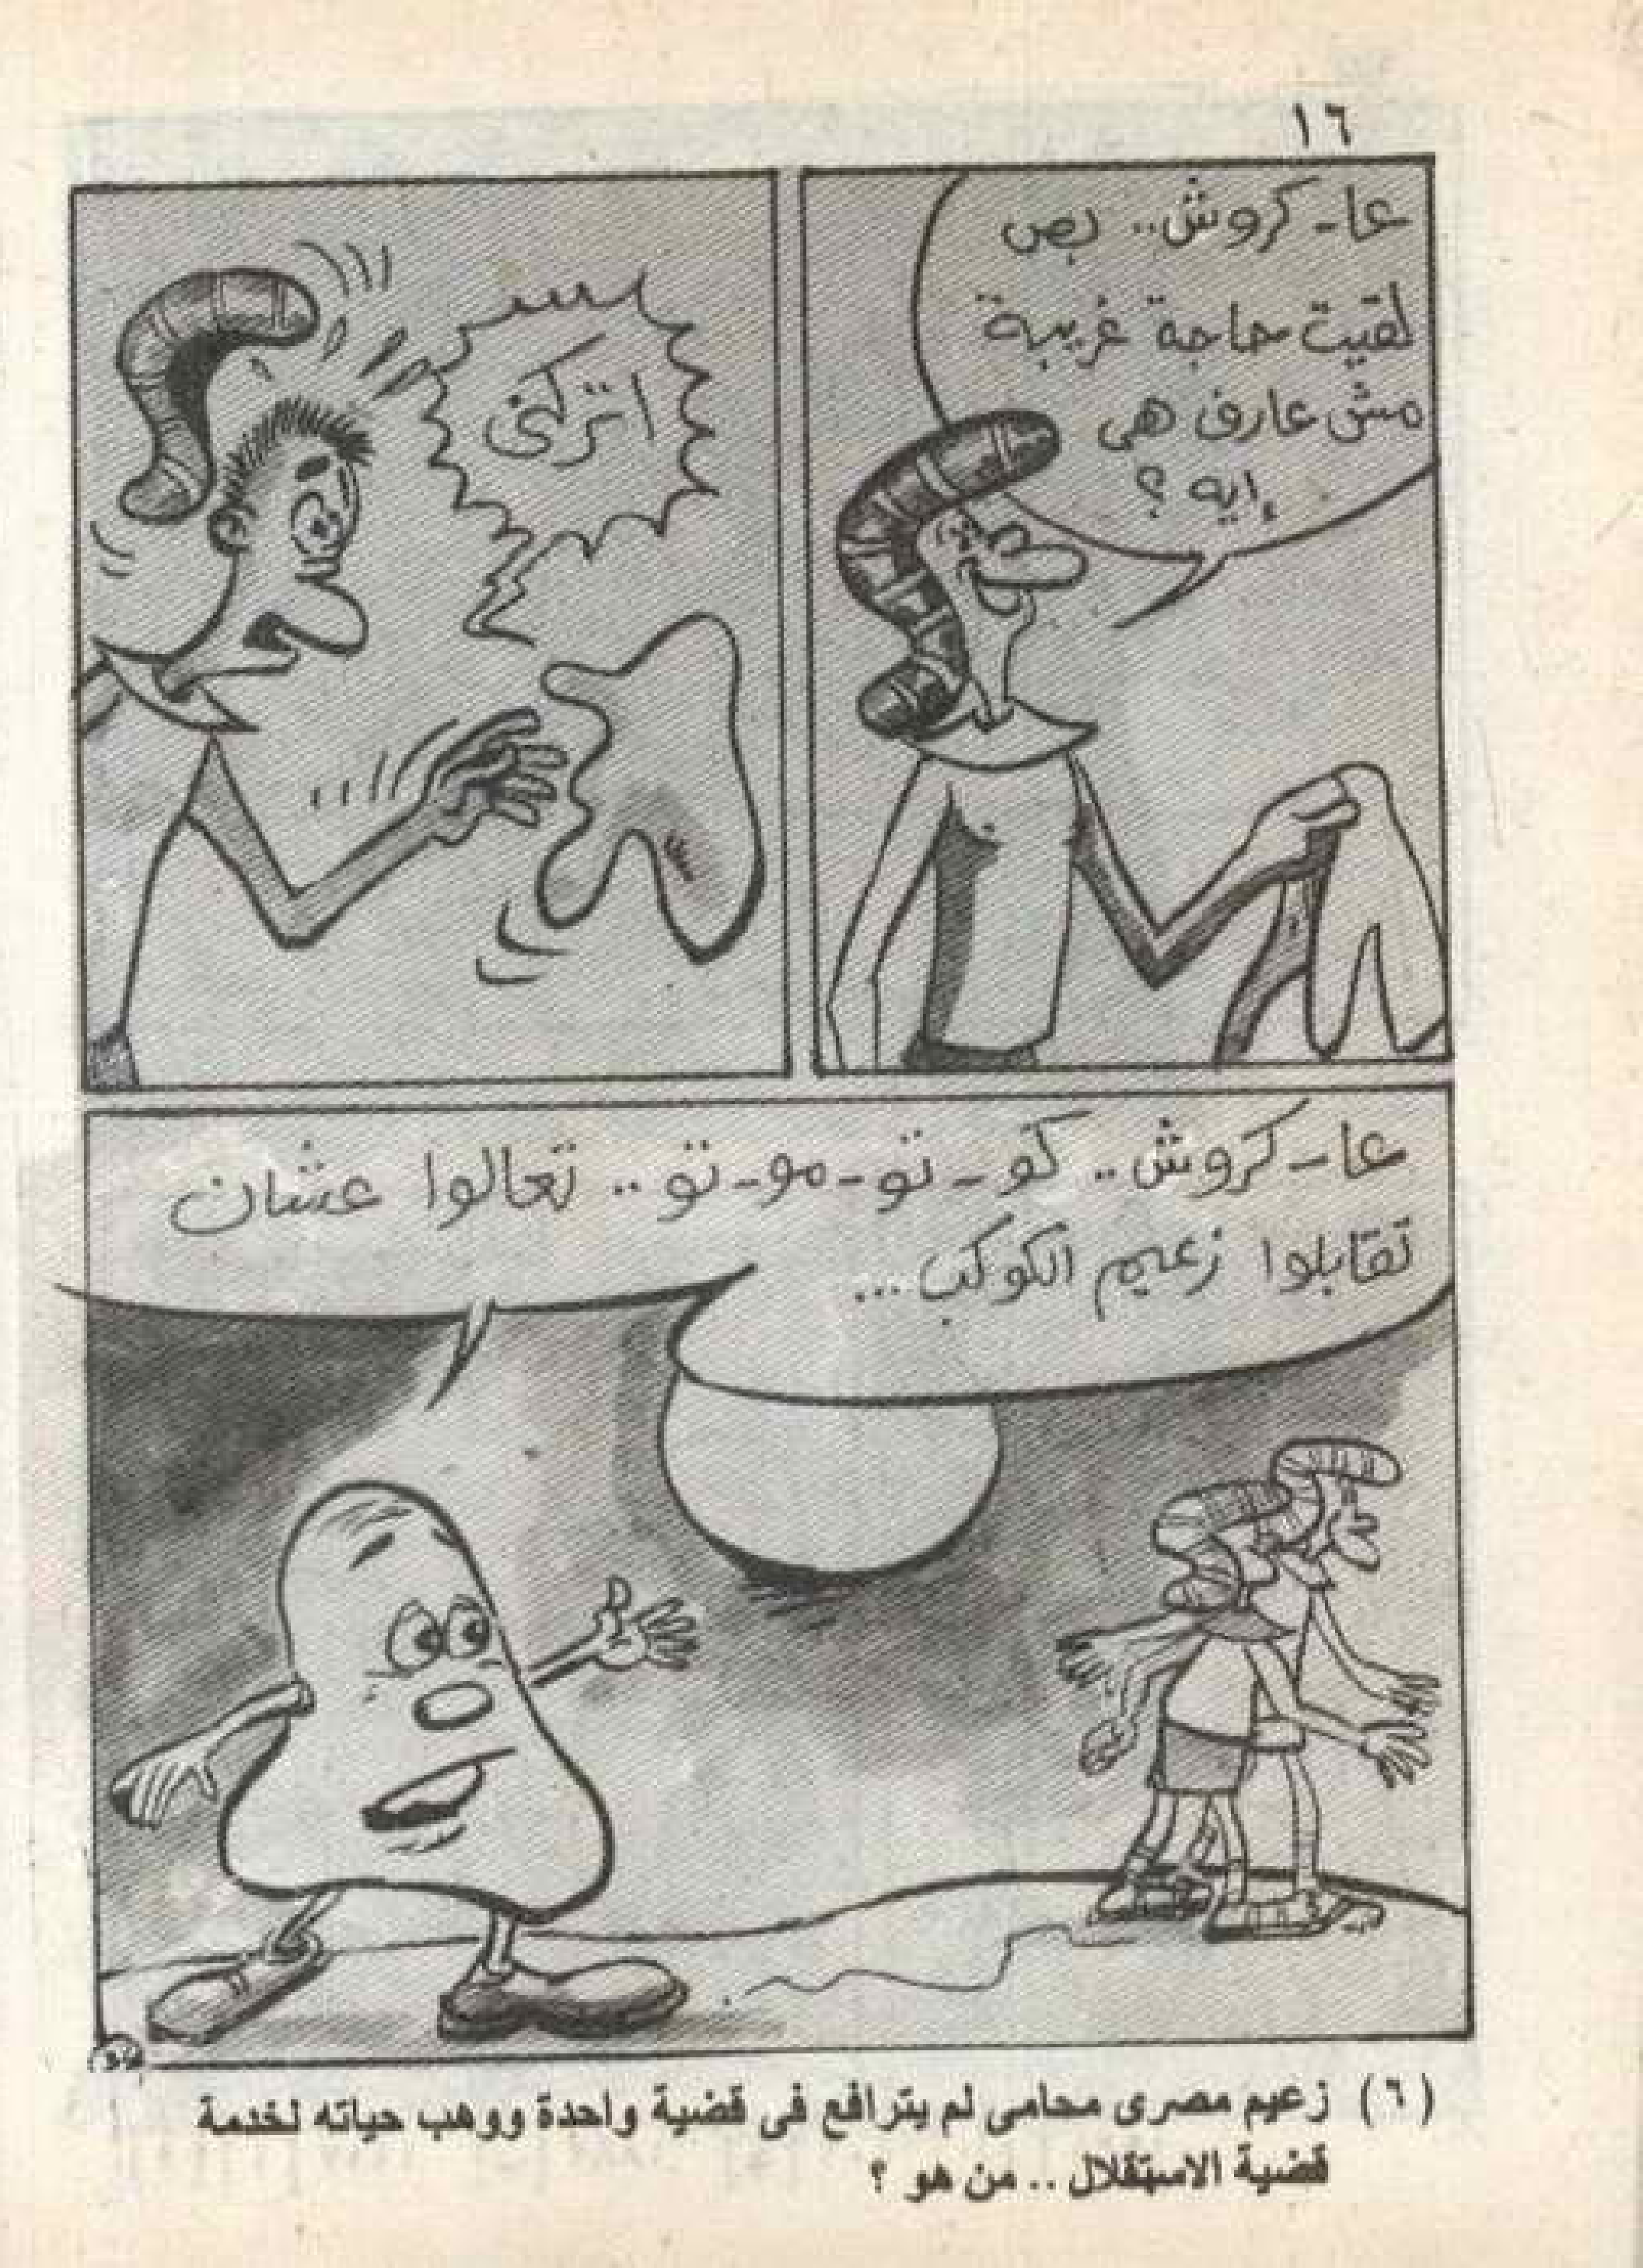 ١٦
عا - كروش .. بص
لقيت حاجة غريبة
مش عارف هى
إيه ؟
اتركنى
عا - كروش .. كو - تو - مو - تو .. تعالوا عشان
تقابلوا زعيم الكوكب ...
( ٦ ) زعيم مصرى محامى لم يترافع فى قضية واحدة ووهب حياته لخدمة
قضية الاستقلال .. من هو ؟